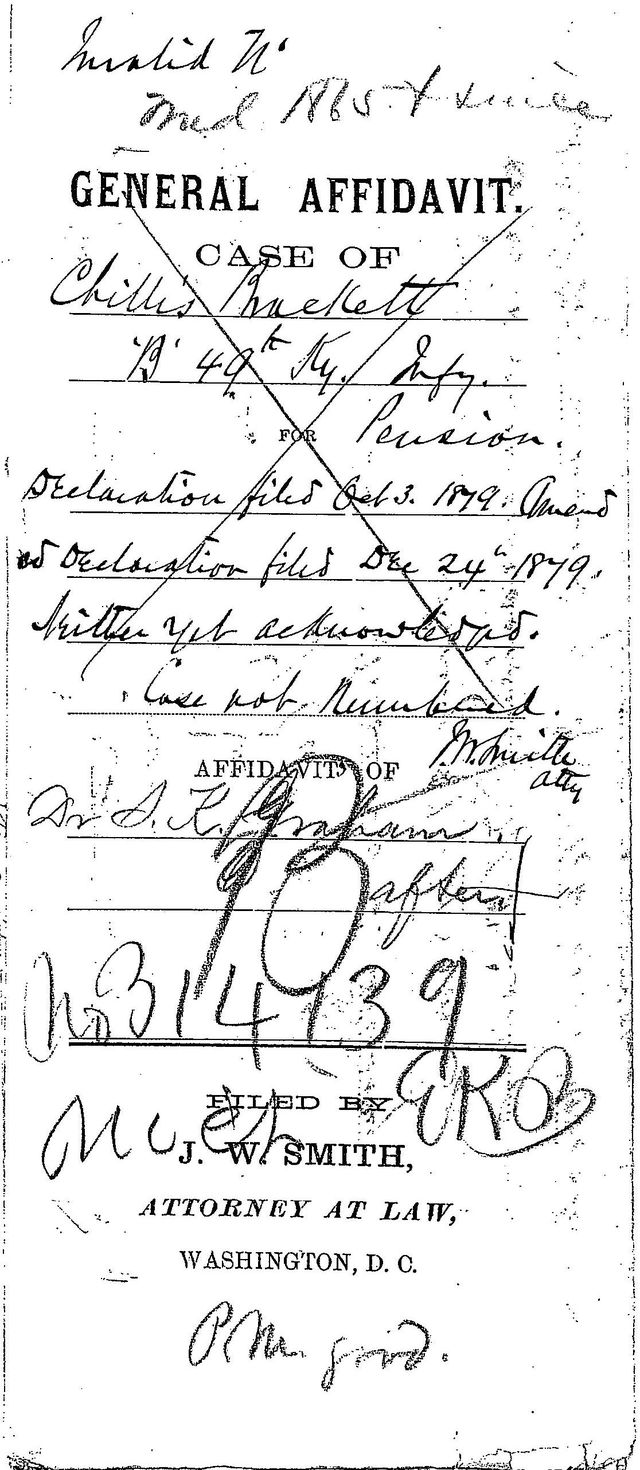 Invalid
Med 1865 & since
GENERAL AFFIDAVIT.
CASE OF
Chillis Brackett
"B" 49th Ky. Infy.
FOR Pension.
Declaration filed Oct 3. 1879. Amend
ed Declaration filed Dec 24th 1879.
Neither yet acknowledged.
Case not Numbered.
J.W. Smith
atty
AFFIDAVIT OF
Dr S. K. Graham
after
No 314139
EKB
FILED BY
J. W. SMITH,
ATTORNEY AT LAW,
WASHINGTON, D. C.
P.M. good.